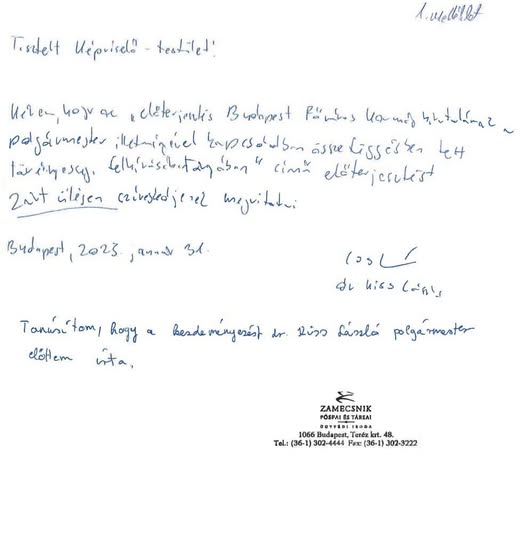 1. melléklet
Tisztelt Képviselő-testület!
Kérem, hogy az „előterjesztés Budapest Főváros Kormányhivatalának a
polgármester illetményével kapcsolatban összefüggésben tett
törvényességi felhívása tárgyában" című előterjesztést
zárt ülésen szíveskedjenek megvitatni
Budapest, 2023. január 31.
dr Kiss László
Tanúsítom, hogy a kezdeményezést dr. Kiss László polgármester
előttem írta.
ZAMECSNIK
PÓSPAI ÉS TÁRSAI
ÜGYVÉDI IRODA
1066 Budapest, Teréz krt. 48.
Tel.: (36-1) 302-4444 Fax: (36-1) 302-3222